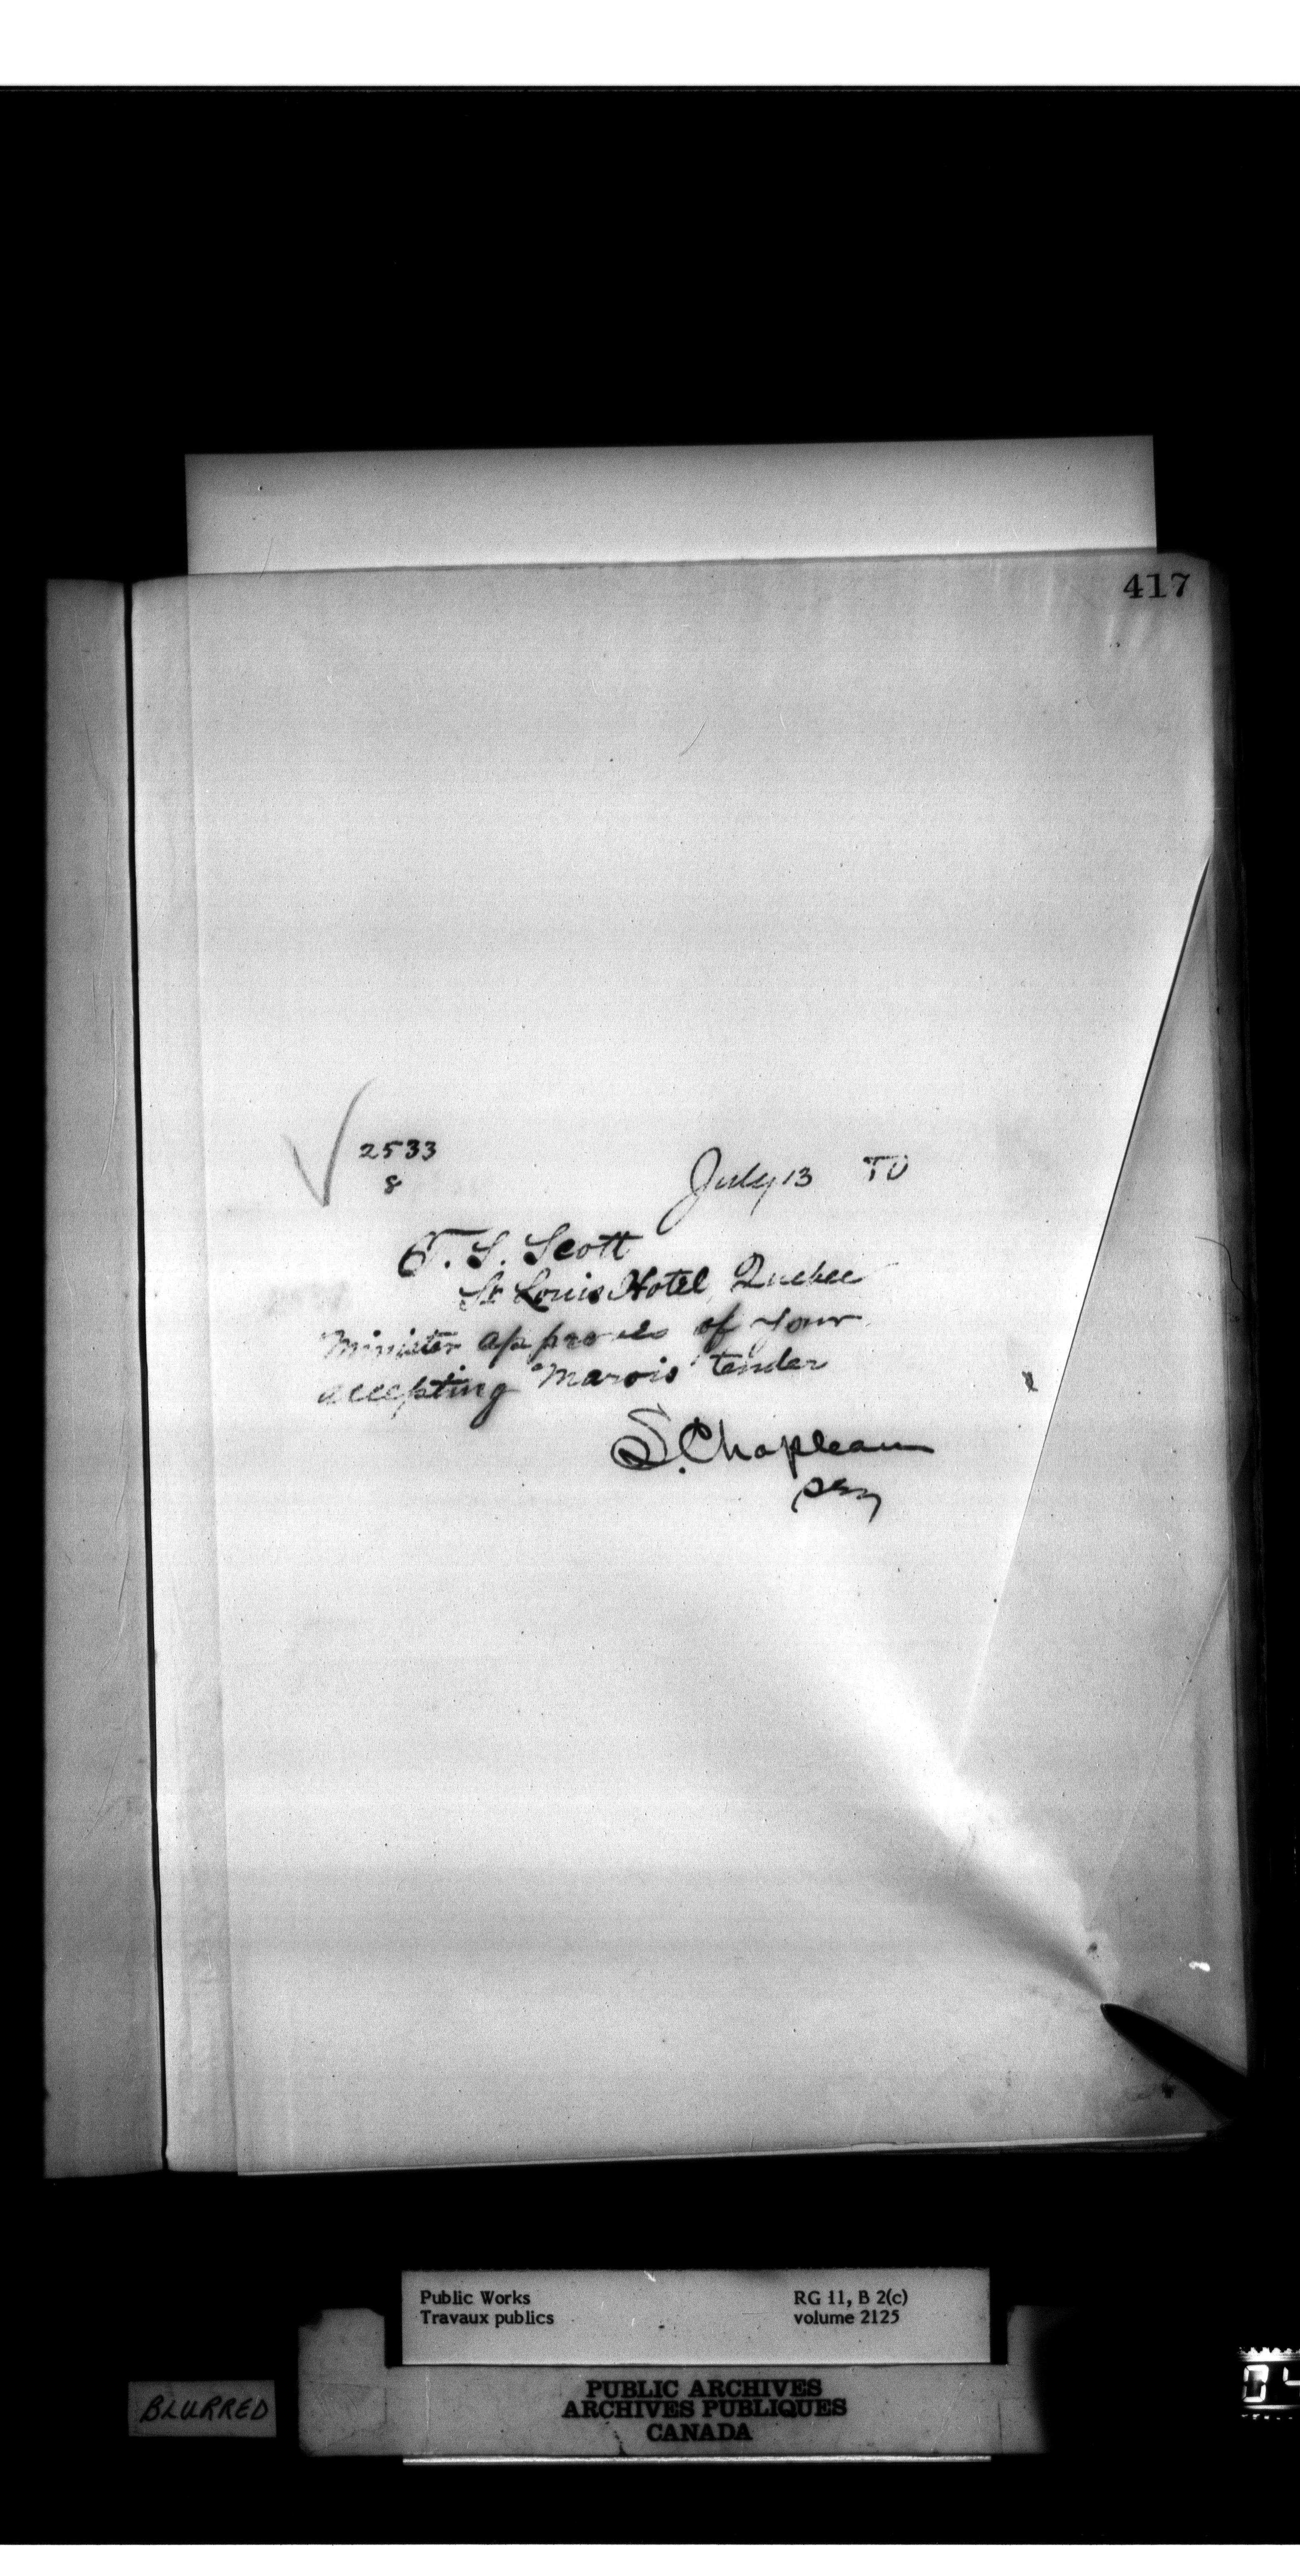 417
2533
8
July 13
T. S. Scott
St Louis Hotel, Quebec
Minister approves of your
accepting Marois' tender
S. Chapleau
Public Works
Travaux publics
RG 11, B 2(c)
volume 2125
PUBLIC ARCHIVES
ARCHIVES PUBLIQUES
CANADA
BLURRED